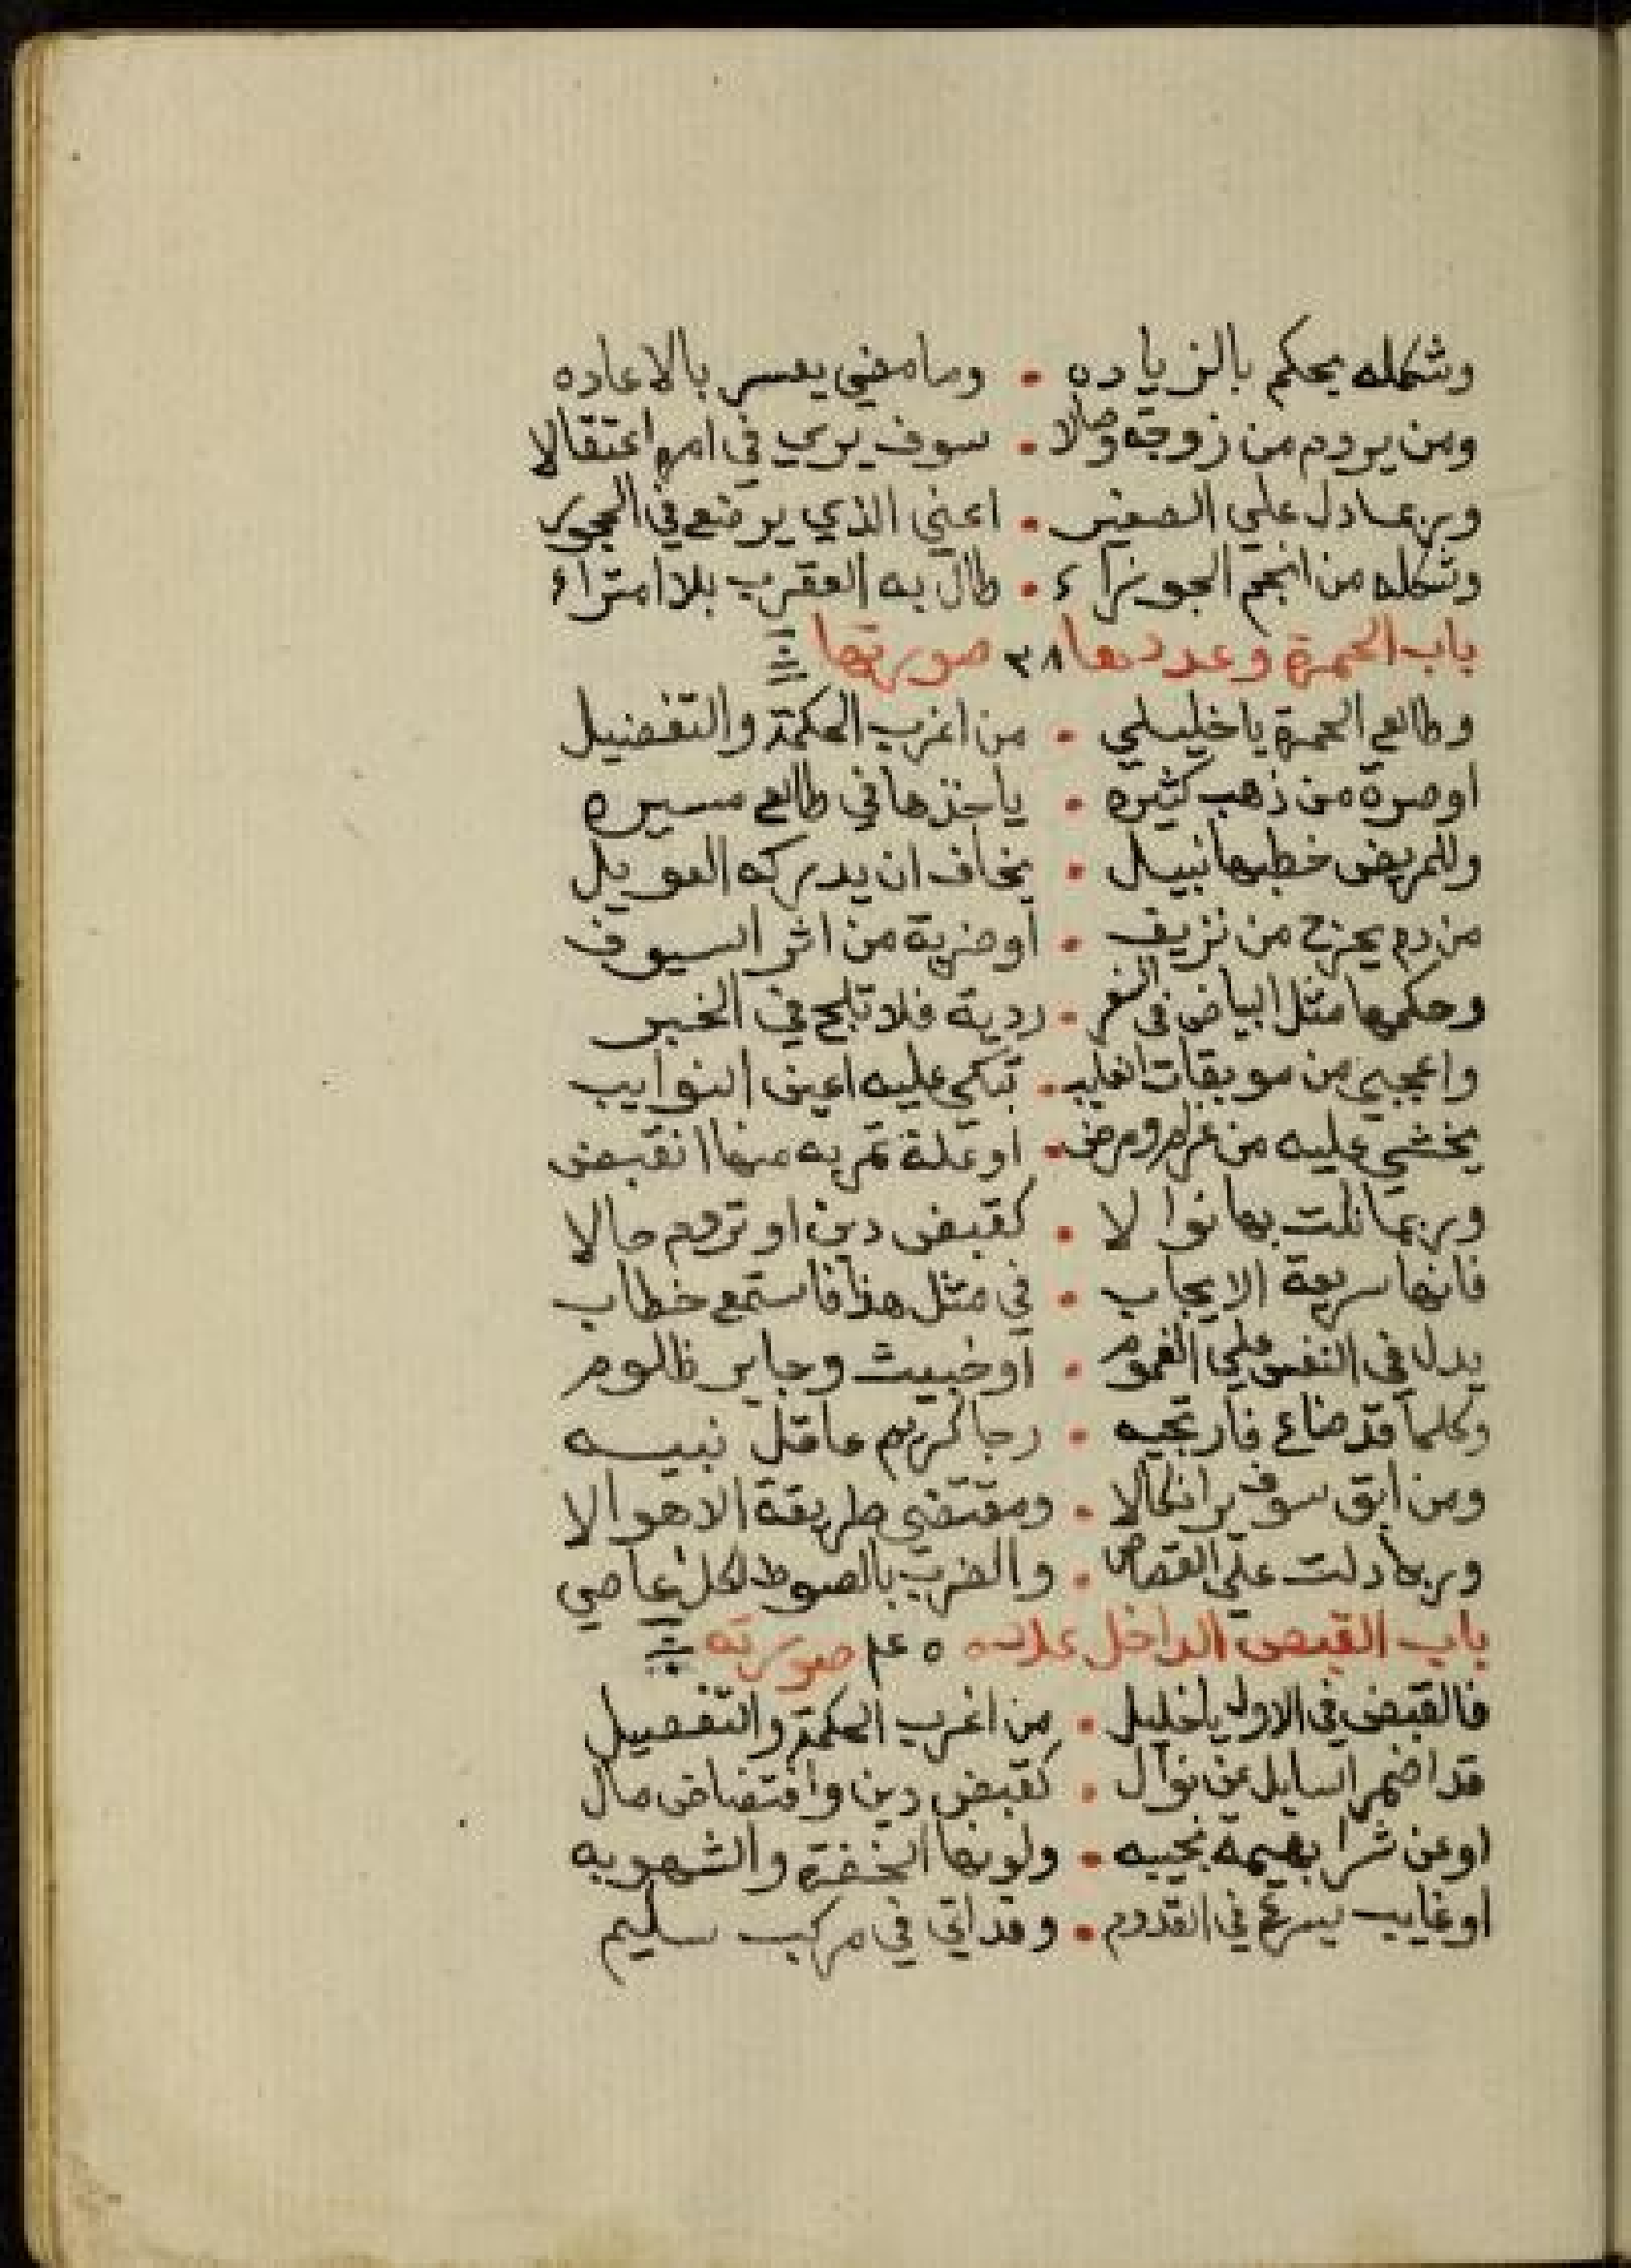 وشكله يحكم بالزياده • وما مضي يعسر بالاعاده
ومن يروم من زوجة وصالا • سوف يري في امره اعتقالا
وربما دل علي الصغير • اعني الذي يرضع في الحجور
وشكله من انجم الجوزاء • طال به العقرب بلا امتراء
باب الحمرة وعددها ٣٨ صورتها
وطالع الحمرة يا خليلي • من اغرب الحكمة والتفضيل
او صرة من ذهب كثيره • ياخذها في طالع مسيره
وللمريض خطبها نبيل • يخاف ان يدركه العويل
من دم يخرج من نزيف • او ضربة من اثر السيوف
وحكمها مثل البياض في السفر • ردية فلا تلج في الخبر
واعجبي من موبقات الغايب • تبكي عليه اعين النوايب
يخشي عليه من غرام ومرض • او علة تمر به منها انقبض
وربما نلت بها نوالا • كقبض دين او تروم مالا
فانها سريعة الايجاب • في مثل هذا فاستمع خطاب
يدل في النفس علي الغموم • او خبيث وجاير ظلوم
وكلما قد ضاع فارتجيه • رجا كريم عاقل نبيه
ومن ابق سوف يرا نكالا • ومقتضي طريقة الاهوالا
وربما دلت علي القصاص • والضرب بالصوط لكل عاصي
باب القبض الداخل صورته
فالقبض في الاول يا خليل • من اغرب الحكمة والتفصيل
قد اضمر السايل عن نوال • كقبض دين واقتضاض مال
او عن شرا بهيمة نجيبه • ولونها الخضرة والشهوبه
او غايب يسرع في القدوم • وقد اتي في مركب سليم